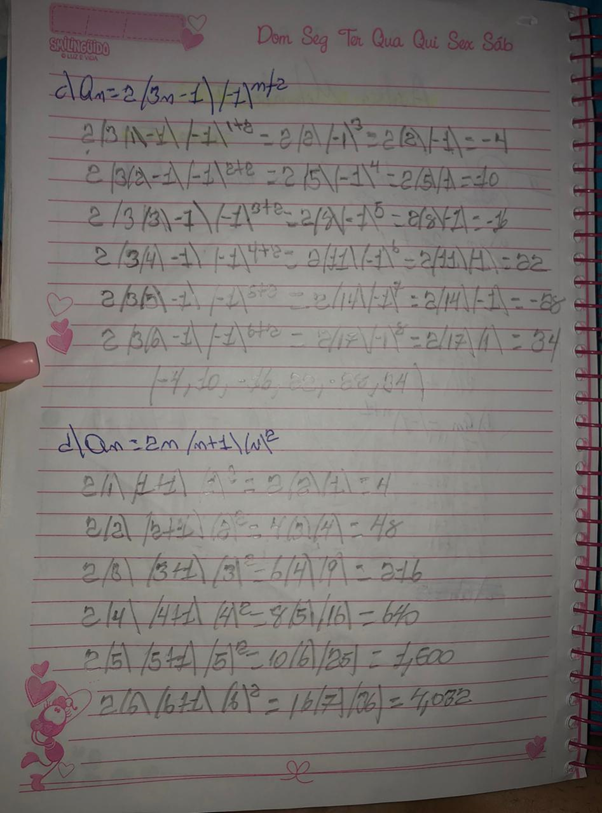 SMILINGUIDO
O LUZ E VIDA
Dom Seg Ter Qua Qui Sex Sáb
c) an=2(3n-1)(-1)^n+2
2(3(1)-1)(-1)^1+2 = 2(2)(-1)^3 = 2(2)(-1) = -4
2(3(2)-1)(-1)^2+2 = 2(5)(-1)^4 = 2(5)(1) = 10
2(3(3)-1)(-1)^3+2 = 2(8)(-1)^5 = 2(8)(-1) = -16
2(3(4)-1)(-1)^4+2 = 2(11)(-1)^6 = 2(11)(1) = 22
2(3(5)-1)(-1)^5+2 = 2(14)(-1)^7 = 2(14)(-1) = -28
2(3(6)-1)(-1)^6+2 = 2(17)(-1)^8 = 2(17)(1) = 34
(-4, 10, -16, 22, -28, 34)
d) an=2n(n+1)(n)^2
2(1)(1+1)(1)^2 = 2(2)(1) = 4
2(2)(2+1)(2)^2 = 4(3)(4) = 48
2(3)(3+1)(3)^2 = 6(4)(9) = 216
2(4)(4+1)(4)^2 = 8(5)(16) = 640
2(5)(5+1)(5)^2 = 10(6)(25) = 1,500
2(6)(6+1)(6)^2 = 16(7)(36) = 4,032